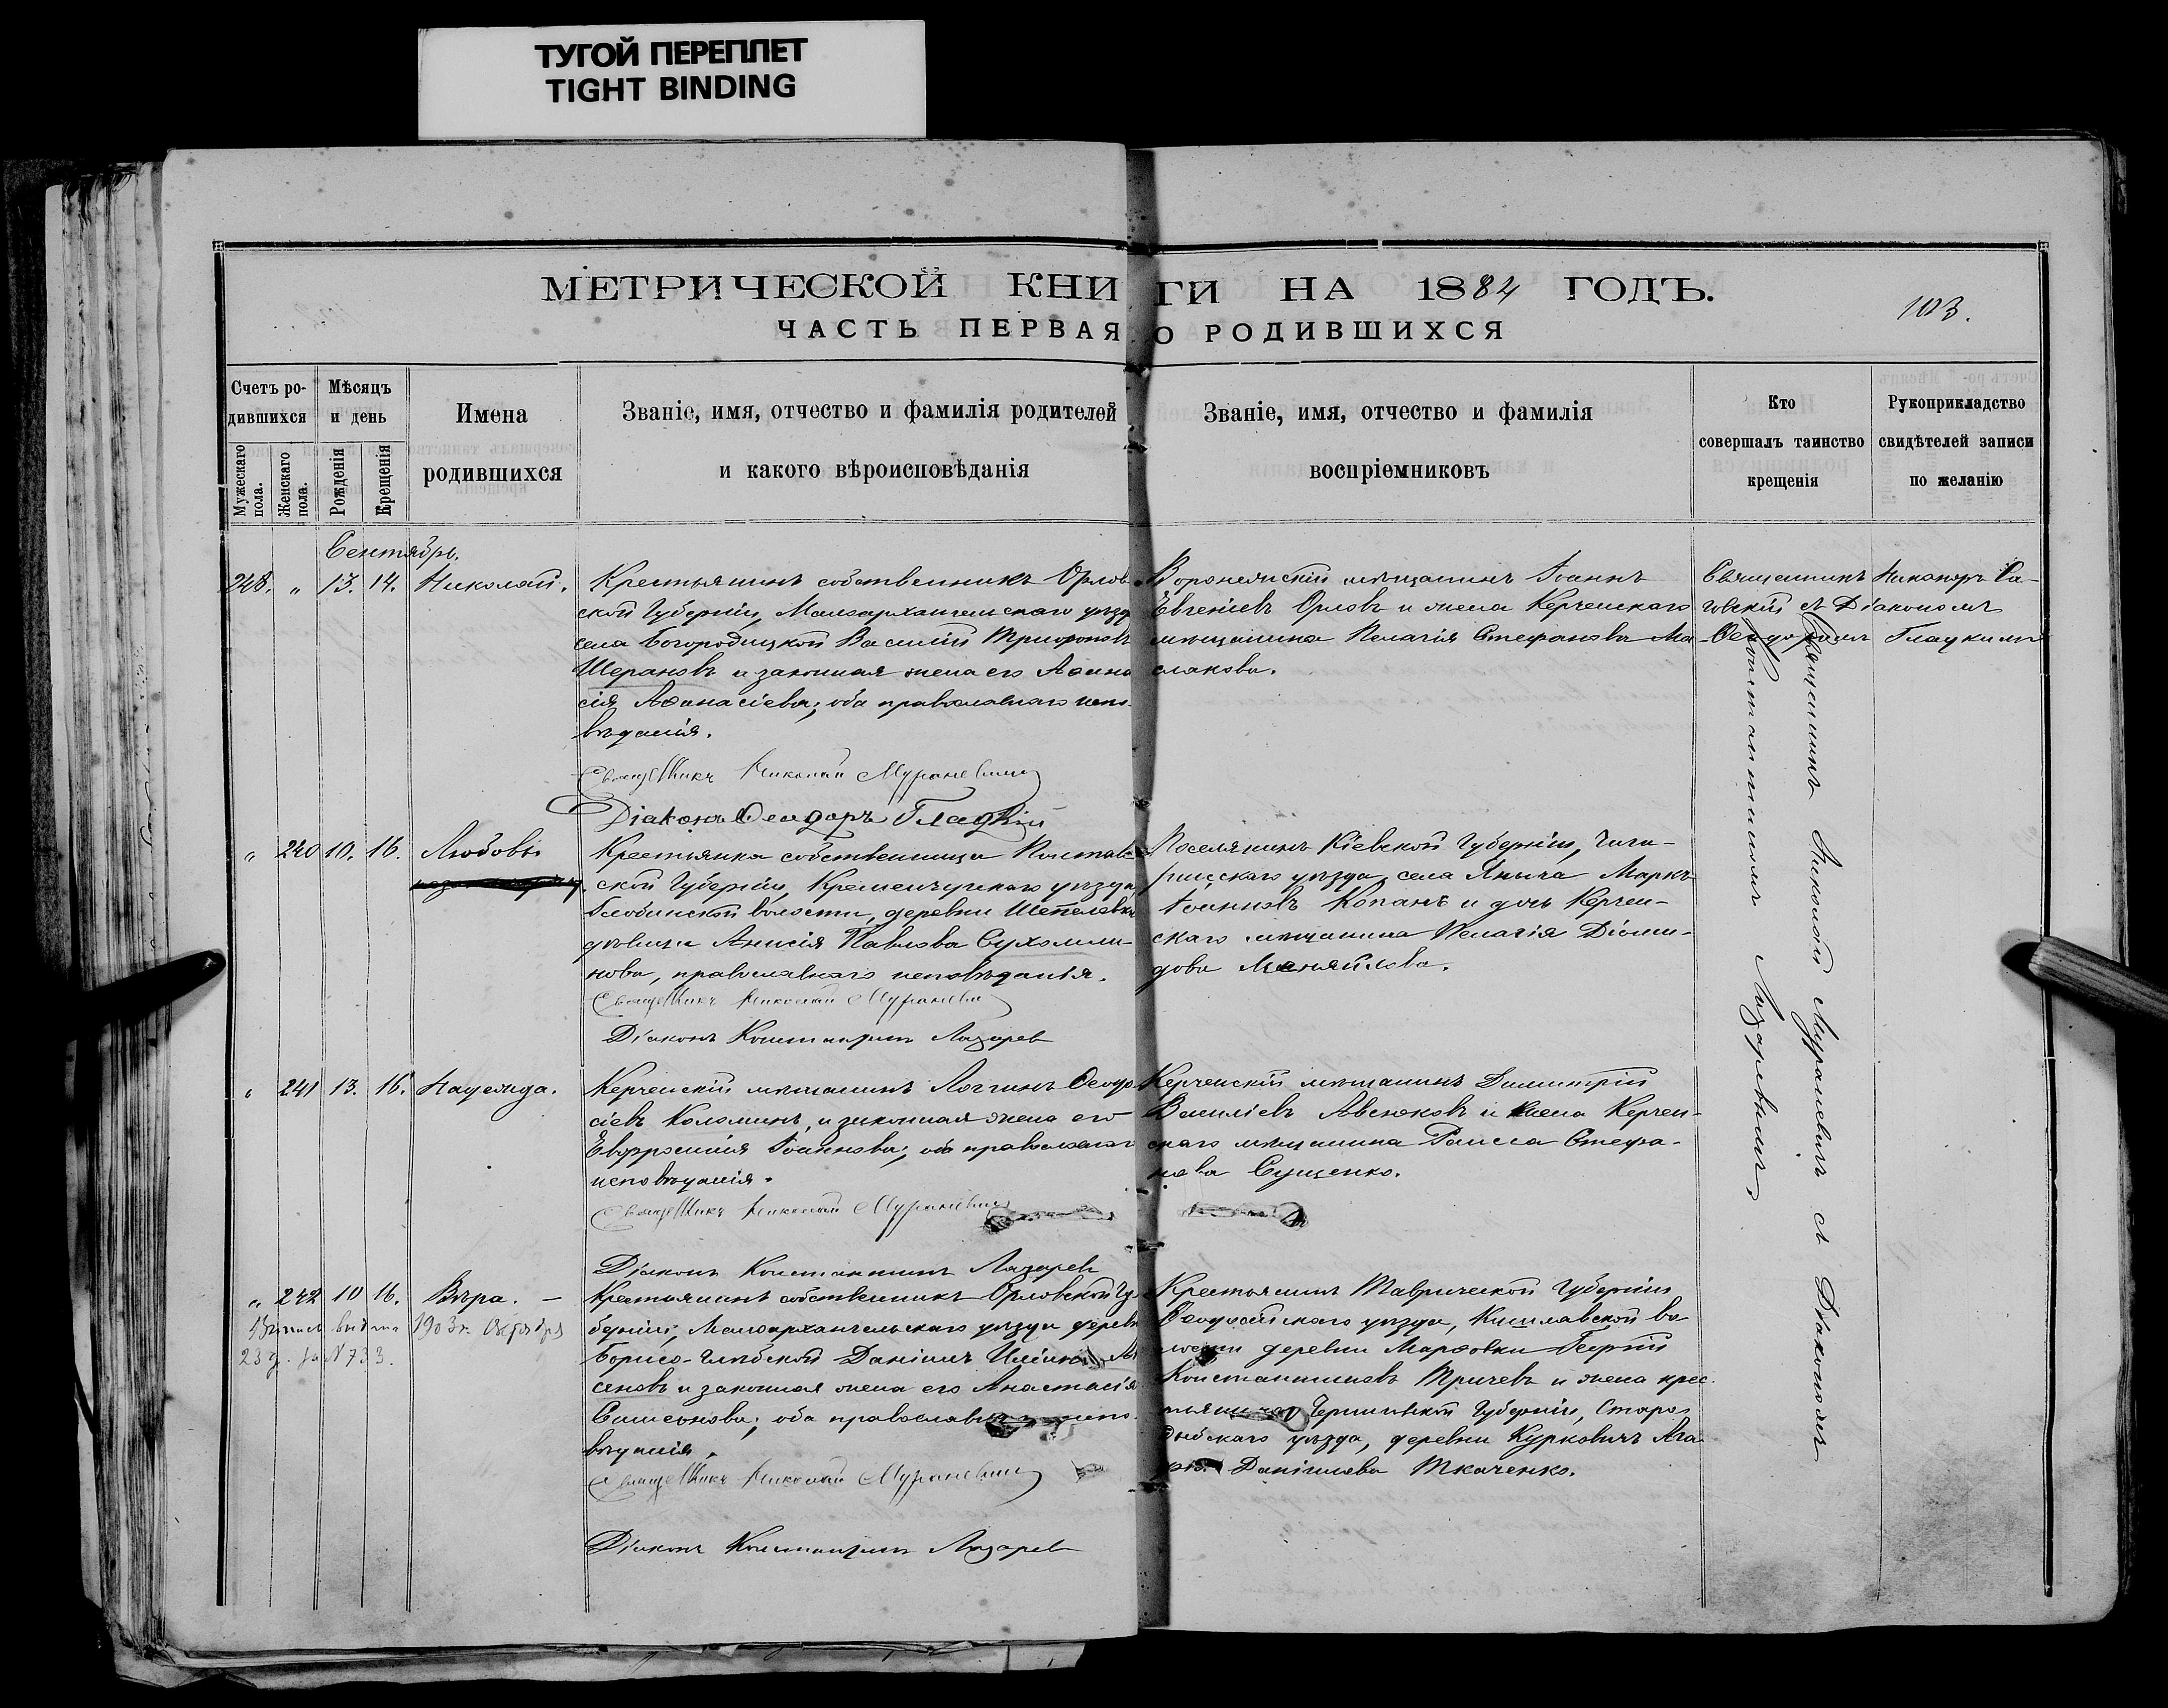 ТУГОЙ ПЕРЕПЛЕТ
TIGHT BINDING
МЕТРИЧЕСКОЙ КНИГИ НА 1884 ГОДЪ.
103.
ЧАСТЬ ПЕРВАЯ О РОДИВШИХСЯ
Счетъ родившихся
Мужескаго пола.
Женскаго пола.
Мѣсяцъ и день
Рожденія
Крещенія
Имена родившихся
Званіе, имя, отчество и фамилія родителей
и какого вѣроисповѣданія
Званіе, имя, отчество и фамилія
воспріемниковъ
Кто совершалъ таинство крещенія
Рукоприкладство свидѣтелей записи по желанію
Сентябрь.
248. „ 13. 14. Николай.
Крестьянинъ собственникъ Орлов-
ской Губерніи, Малоархангельскаго уѣзда
села Богородицкой Василій
и законная жена его
сія Аѳанасіева; оба православнаго испо-
вѣданія.
Священникъ Николай Мураневичъ
Діаконъ Ѳеодоръ Гладкій
Воронежскій мѣщанинъ Іоаннъ
Евгеніевъ Орловъ и жена Керченскаго
мѣщанина Пелагія Стефанова Ма
слакова.
Священникъ Никаноръ
съ Діакономъ
Ѳеодоромъ Гладкимъ
„ 240 10. 16. Любовь
Крестьянка собственница Полтав-
ской Губерніи, Кременчугскаго уѣзда
Глобинской волости, деревни Шепелевки
дѣвица Анисія Павлова Сухомли-
нова, православнаго исповѣданія.
Священникъ Николай Мураневичъ
Діаконъ Константинъ Лазарев
Поселянинъ Кіевской Губерніи, Чиги-
ринскаго уѣзда, села Маркъ
Іоанновъ Копанъ и дочь Керчен-
скаго мѣщанина Пелагія Діоми-
дова Меняйлова.
Священникъ Николай Мураневичъ съ Діакономъ
Константиномъ Лазаревымъ.
„ 241 13. 16. Надежда.
Керченскій мѣщанинъ Логгинъ Ѳеодо
сіевъ Коломинъ, и законная жена его
Евфросинія Іоаннова; оба православнаго
исповѣданія.
Священникъ Николай Мураневичъ
Діаконъ Константинъ Лазарев
Керченскій мѣщанинъ Димитрій
Василіевъ и жена Керчен-
скаго мѣщанина Раиса Стефа-
нова Сущенко.
„ 242 10 16. Вѣра. —
выдана 1903 г. Октября
23 д. за № 733.
Крестьянинъ собственникъ Орловской Гу-
берніи, Малоархангельскаго уѣзда деревни
Борисо-Глѣбской Даніилъ
и законная жена его Анастасія
Симеонова; оба православнаго испо-
вѣданія.
Священникъ Николай Мураневичъ
Діаконъ Константинъ Лазарев
Крестьянинъ Таврической Губерніи
Ѳеодосійскаго уѣзда, во
лости деревни Марѳовки Георгій
Константиновъ Тричевъ и жена крес-
тьянина Черниговской Губерніи, Старо
дубскаго уѣзда, деревни Курковичъ Ага
Даніилова Ткаченко.